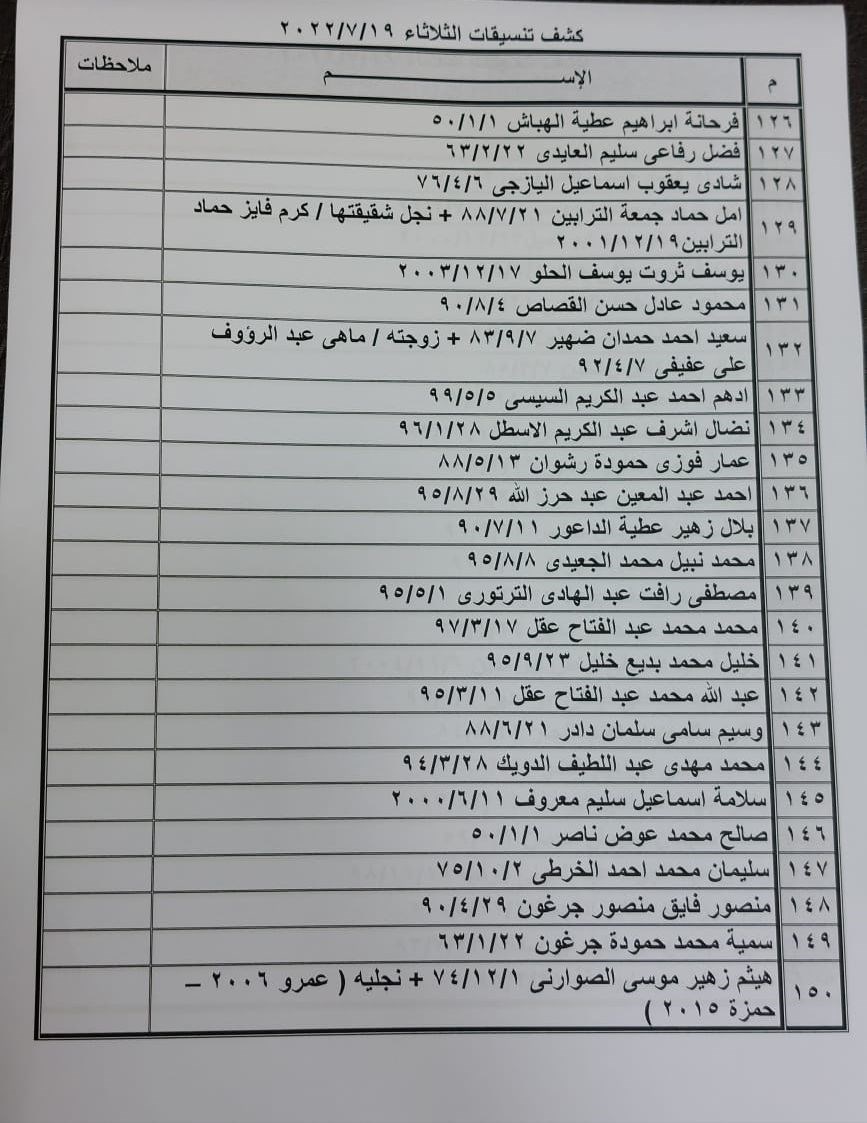 كشف تنسيقات الثلاثاء ٢٠٢٢/٧/١٩
م الإســـــــــم ملاحظات
١٢٦ فرحانة ابراهيم عطية الهباش ٥٠/١/١
١٢٧ فضل رفاعى سليم العايدى ٦٣/٢/٢٢
١٢٨ شادى يعقوب اسماعيل اليازجى ٧٦/٤/٦
١٢٩ امل حماد جمعة الترابين ٨٨/٧/٢١ + نجل شقيقتها / كرم فايز حماد
الترابين٢٠٠١/١٢/١٩
١٣٠ يوسف ثروت يوسف الحلو ٢٠٠٣/١٢/١٧
١٣١ محمود عادل حسن القصاص ٩٠/٨/٤
١٣٢ سعيد احمد حمدان ضهير ٨٣/٩/٧ + زوجته / ماهى عبد الرؤوف
على عفيفى ٩٢/٤/٧
١٣٣ ادهم احمد عبد الكريم السيسى ٩٩/٥/٥
١٣٤ نضال اشرف عبد الكريم الاسطل ٩٦/١/٢٨
١٣٥ عمار فوزى حمودة رشوان ٨٨/٥/١٣
١٣٦ احمد عبد المعين عبد حرز الله ٩٥/٨/٢٩
١٣٧ بلال زهير عطية الداعور ٩٠/٧/١١
١٣٨ محمد نبيل محمد الجعيدى ٩٥/٨/٨
١٣٩ مصطفى رافت عبد الهادى الترتورى ٩٥/٥/١
١٤٠ محمد محمد عبد الفتاح عقل ٩٧/٣/١٧
١٤١ خليل محمد بديع خليل ٩٥/٩/٢٣
١٤٢ عبد الله محمد عبد الفتاح عقل ٩٥/٣/١١
١٤٣ وسيم سامى سلمان دادر ٨٨/٦/٢١
١٤٤ محمد مهدى عبد اللطيف الدويك ٩٤/٣/٢٨
١٤٥ سلامة اسماعيل سليم معروف ٢٠٠٠/٦/١١
١٤٦ صالح محمد عوض ناصر ٥٠/١/١
١٤٧ سليمان محمد احمد الخرطى ٧٥/١٠/٢
١٤٨ منصور فايق منصور جرغون ٩٠/٤/٢٩
١٤٩ سمية محمد حمودة جرغون ٦٣/١/٢٢
١٥٠ هيثم زهير موسى الصوارنى ٧٤/١٢/١ + نجليه ( عمرو ٢٠٠٦ –
حمزة ٢٠١٥ )